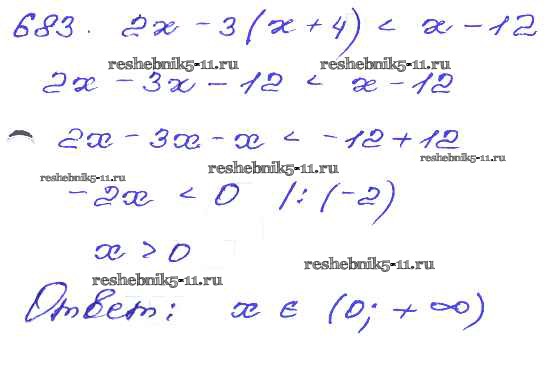 683. 2x - 3(x + 4) < x - 12
reshebnik5-11.ru reshebnik5-11.ru
2x - 3x - 12 < x - 12
2x - 3x - x < -12 + 12
reshebnik5-11.ru
reshebnik5-11.ru
reshebnik5-11.ru
-2x < 0 /: (-2)
x > 0
reshebnik5-11.ru
reshebnik5-11.ru
Ответ: x ∈ (0; +∞)